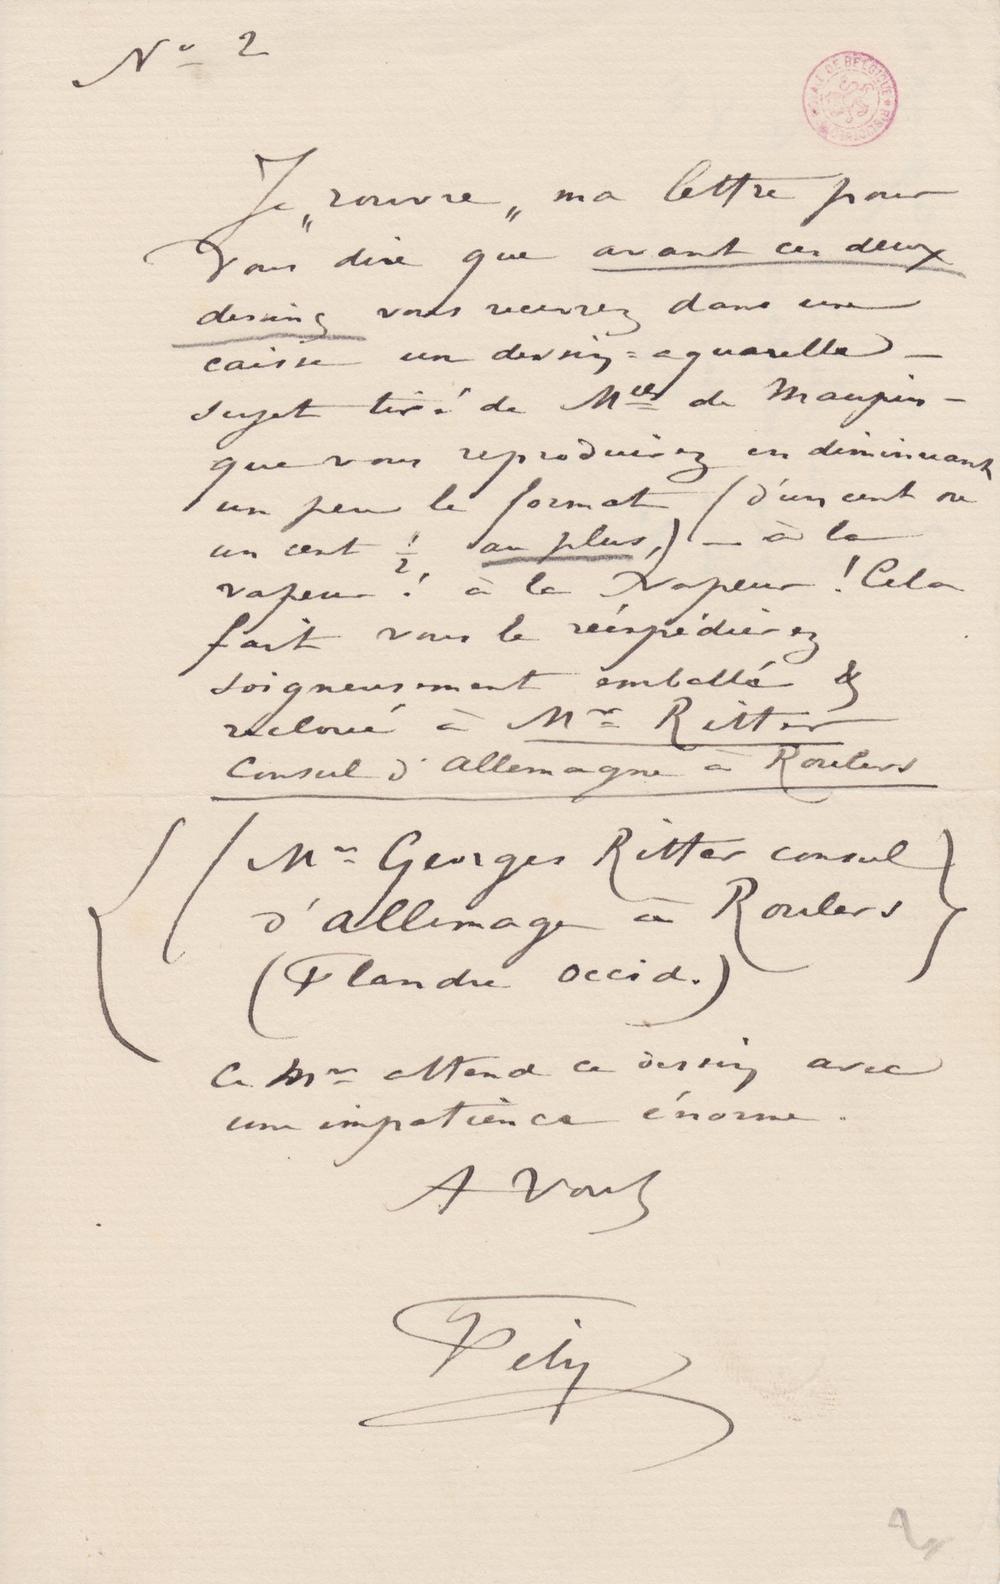 No 2
Je "rouvre" ma lettre pour
Vous dire que avant ces deux
dessins vous recevrez dans une
caisse un dessin-aquarelle –
sujet tiré de Mlle de Maupin –
que vous reproduirez en diminuant
un peu le format (d'un cent ou
un cent 1/2 au plus,) – à la
vapeur! à la vapeur! Cela
fait vous le réexpédierez
soigneusement emballé &
recloué à Mr Ritter
Consul d'Allemagne à Roulers
{(Mr Georges Ritter consul
d'allemage à Roulers}
(Flandre occid.)
Ce Mr attend ce dessin avec
une impatience énorme.
A Vous
Fély
2